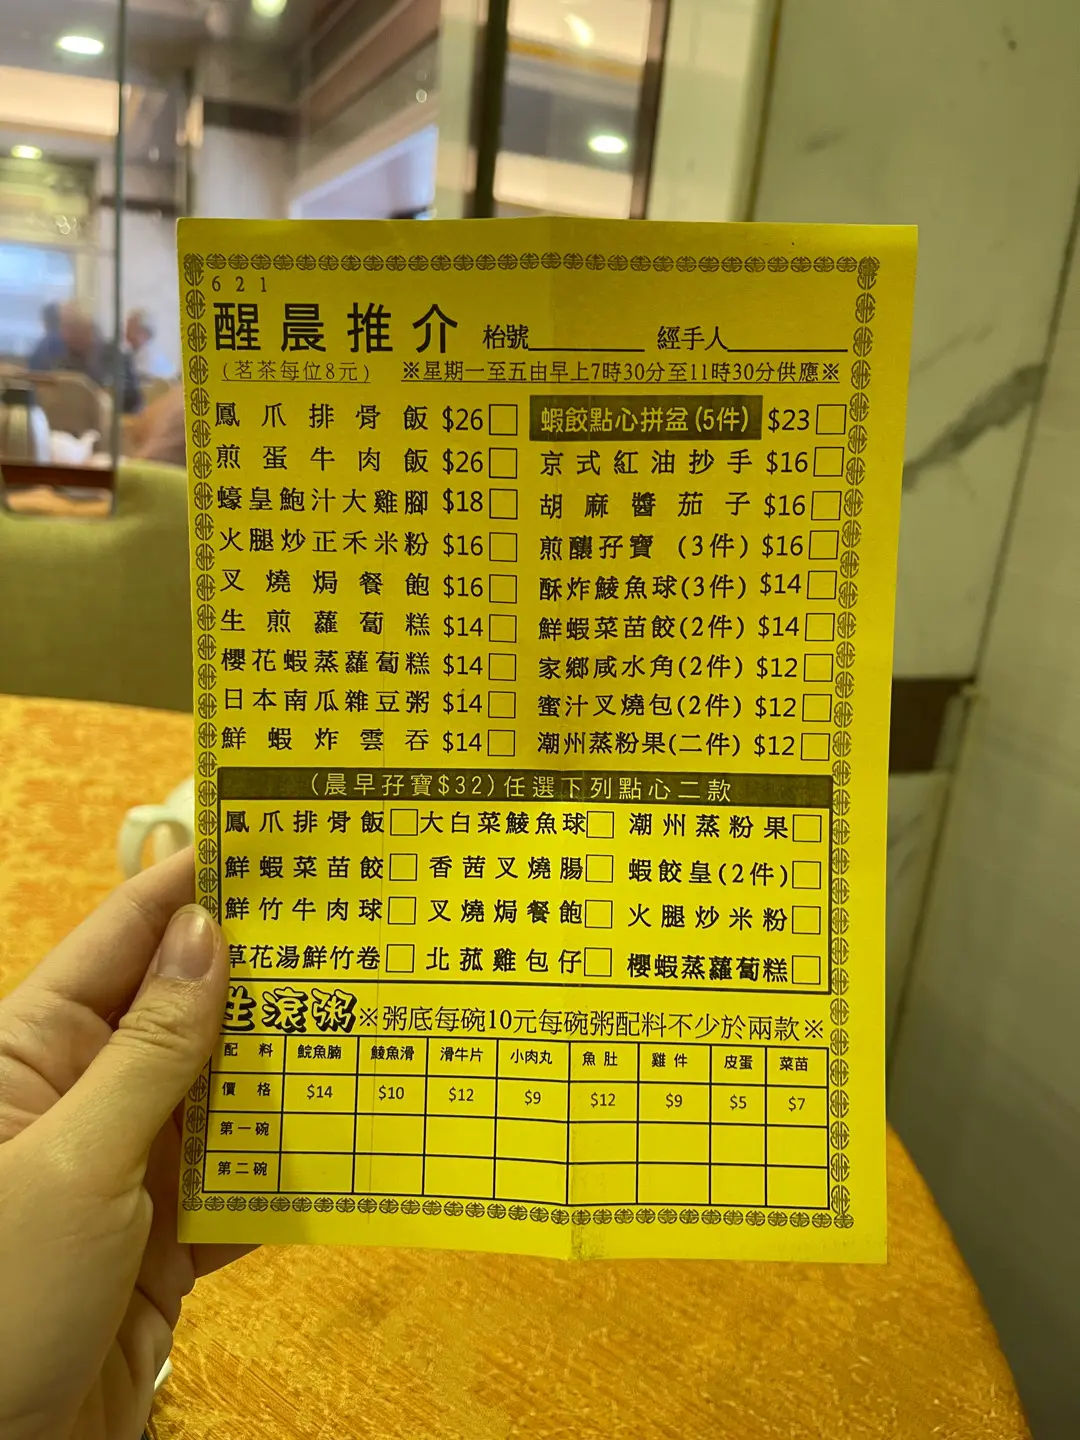 621
醒晨推介 枱號________ 經手人________
(茗茶每位8元) ※星期一至五由早上7時30分至11時30分供應※
鳳爪排骨飯 $26□ 蝦餃點心拼盆(5件) $23□
煎蛋牛肉飯 $26□ 京式紅油抄手 $16□
蠔皇鮑汁大雞腳 $18□ 胡麻醬茄子 $16□
火腿炒正禾米粉 $16□ 煎釀孖寶 (3件) $16□
叉燒焗餐飽 $16□ 酥炸鯪魚球(3件) $14□
生煎蘿蔔糕 $14□ 鮮蝦菜苗餃(2件) $14□
櫻花蝦蒸蘿蔔糕 $14□ 家鄉咸水角(2件) $12□
日本南瓜雜豆粥 $14□ 蜜汁叉燒包(2件) $12□
鮮蝦炸雲吞 $14□ 潮州蒸粉果(二件) $12□
(晨早孖寶$32)任選下列點心二款
鳳爪排骨飯□ 大白菜鯪魚球□ 潮州蒸粉果□
鮮蝦菜苗餃□ 香茜叉燒腸□ 蝦餃皇(2件)□
鮮竹牛肉球□ 叉燒焗餐飽□ 火腿炒米粉□
草花湯鮮竹卷□ 北菰雞包仔□ 櫻蝦蒸蘿蔔糕□
生滾粥 ※粥底每碗10元每碗粥配料不少於兩款※
配料 鯇魚腩 鯪魚滑 滑牛片 小肉丸 魚肚 雞件 皮蛋 菜苗
價格 $14 $10 $12 $9 $12 $9 $5 $7
第一碗
第二碗